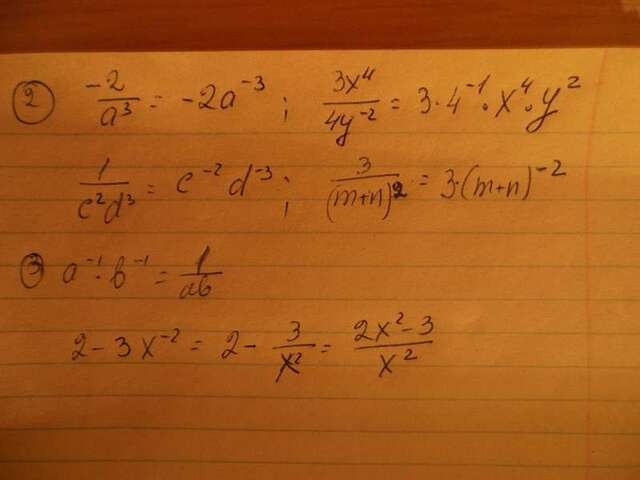 ② -2/a³ = -2a⁻³ ; 3x⁴/4y⁻² = 3·4⁻¹·x⁴·y²
1/c²d³ = c⁻²d⁻³ ; 3/(m+n)² = 3·(m+n)⁻²
③ a⁻¹·b⁻¹ = 1/ab
2 - 3x⁻² = 2 - 3/x² = 2x²-3/x²